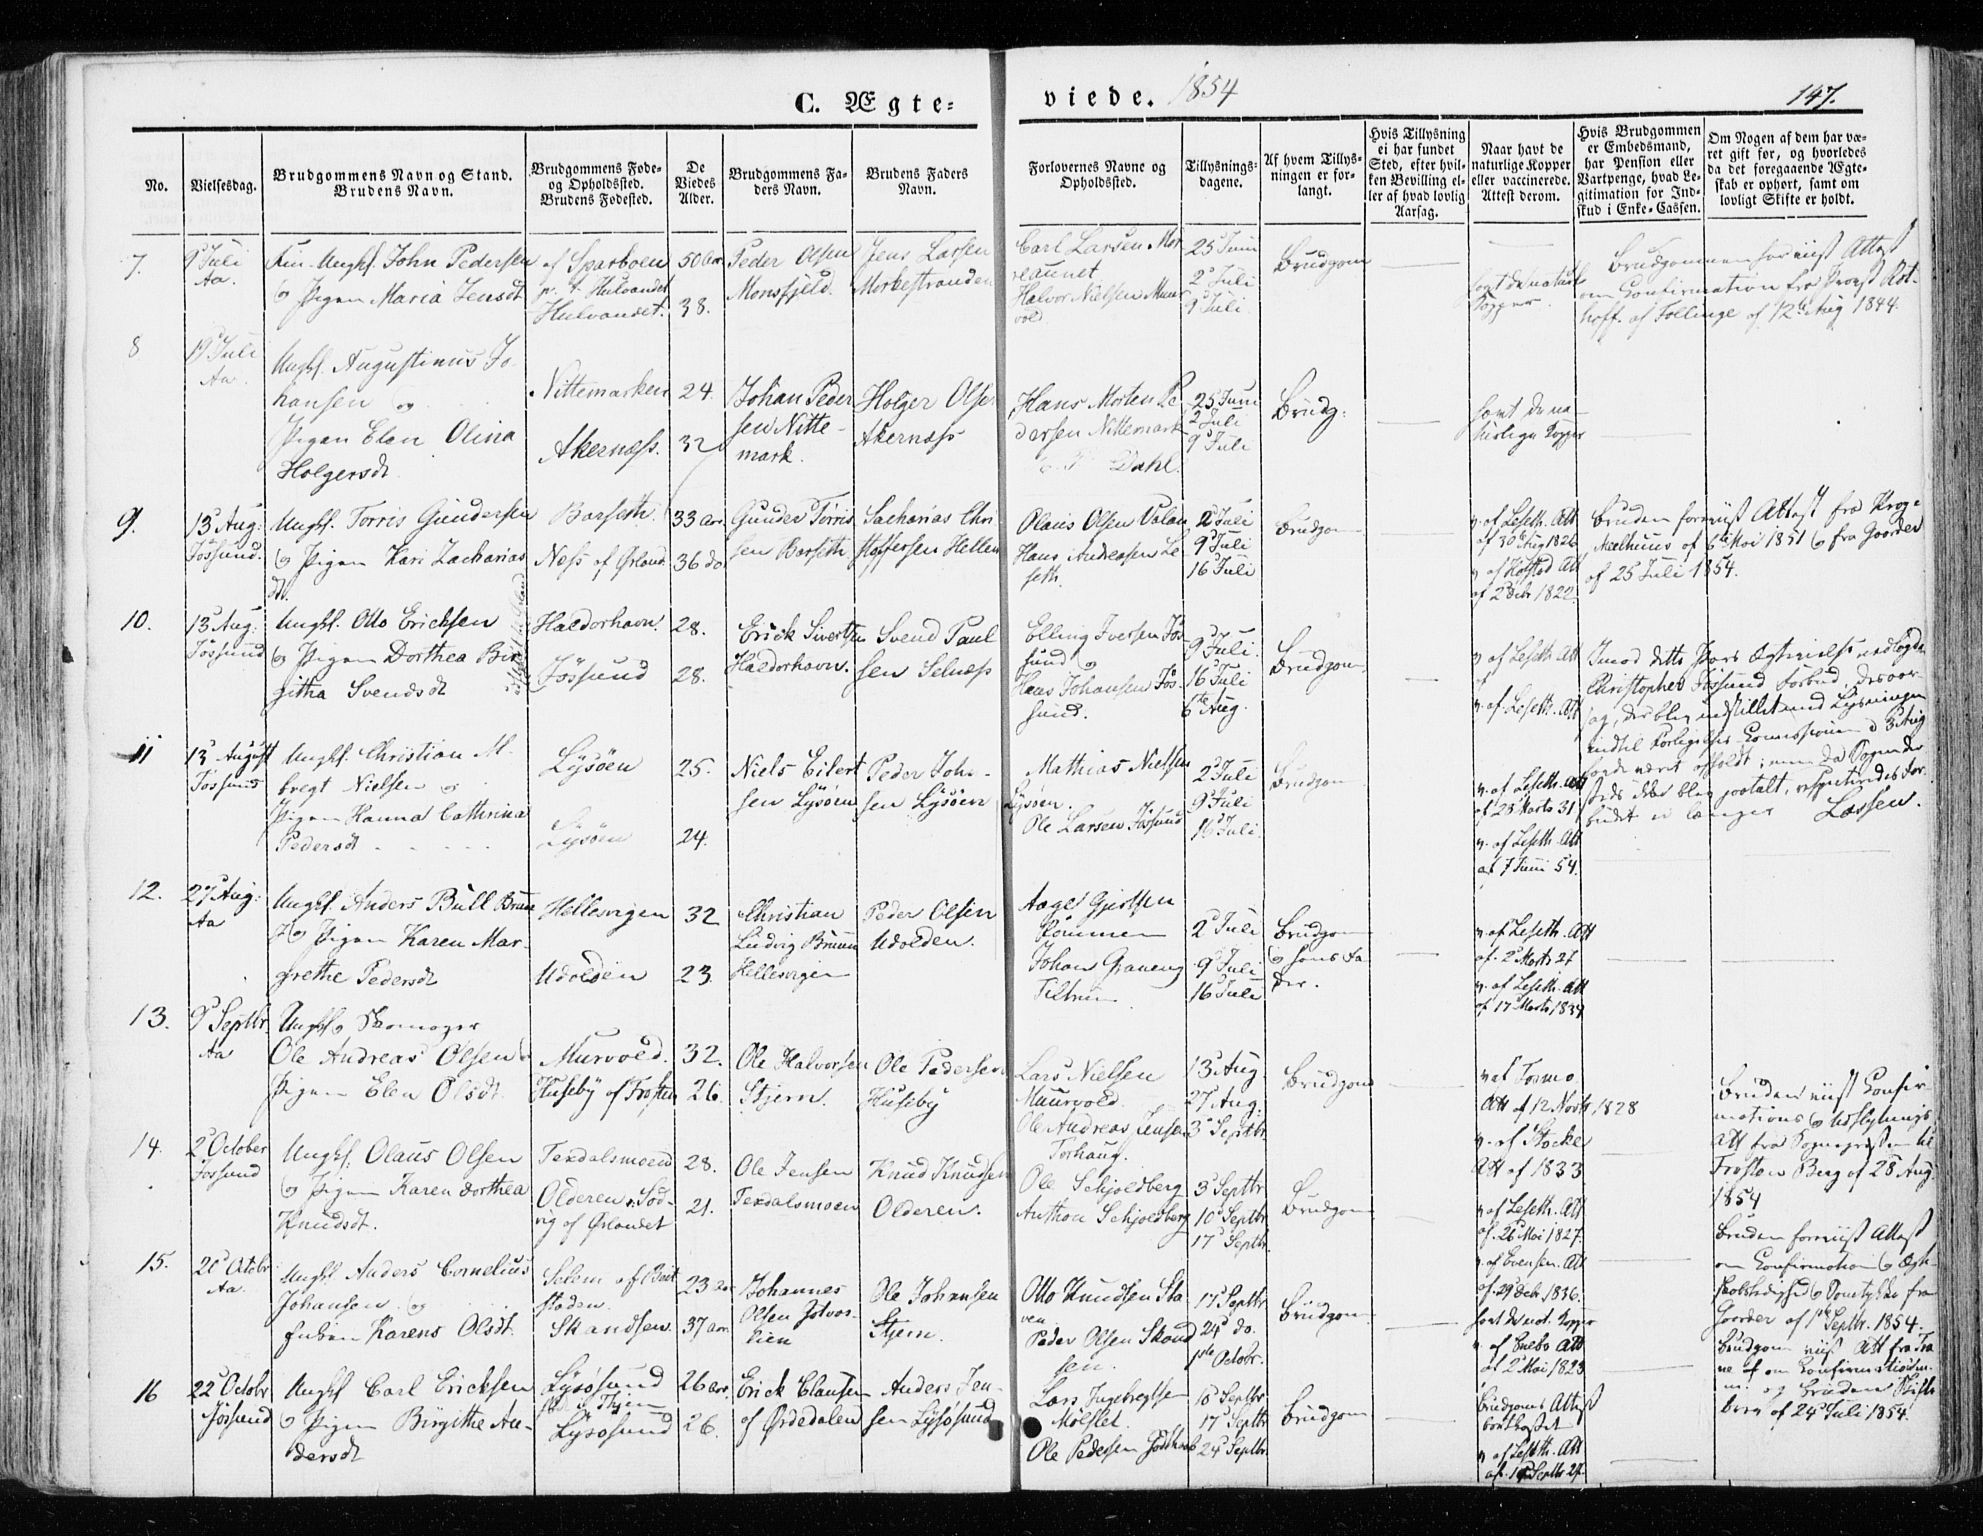 C. Ægte-
viede. 1854
147.
No.
Vielsesdag.
Brudgommens Navn og Stand.
Brudens Navn.
Brudgommens Føde-
og Opholdssted.
Brudens Fødested.
De
Viedes
Alder.
Brudgommens Fa-
ders Navn.
Brudens Faders
Navn.
Forlovernes Navne og
Opholdssted.
Tillysnings-
dagene.
Af hvem Tillys-
ningen er for-
langt.
Hvis Tillysning
ei har fundet
Sted, efter hvil-
ken Bevilling el-
ler af hvad lovlig
Aarsag.
Naar havt de
naturlige Kopper
eller vaccinerede.
Attest derom.
Hvis Brudgommen
er Embedsmand,
har Pension eller
Vartpenge, hvad Le-
gitimation for Ind-
skud i Enke-Cassen.
Om Nogen af dem har væ-
ret gift før, og hvorledes
da det foregaaende Ægte-
skab er ophørt, samt om
lovligt Skifte er holdt.
7.
9 Juli
Aa.
Ungkf. John Pedersen
og Pigen Maria Jensdt
af Sparboen
Hulvandet
Hulvandet.
50 Aar
38.
Peder Olsen
Monsfjeld.
Jens Larsen
Morkestranden
Carl Larsen Mor
reaunet
Halvor Nielsen Muur
vold
25 Juni
2 Juli
9 Juli
Brudgom
havt de naturl
Kopper.
Brudgommen foreviist Attest
om Confirmation fra Provst
af Follinge af 12 Aug 1844.
8
19 Juli
Aa.
Ungkf. Augustinus Jo-
hansen og
Pigen Elen Olina
Holgersdt
Nittemarken
Akernæss.
24.
32
Johan Peder
sen Nitte-
mark.
Holger Olsen
Akernæss
Hans Morten Pe-
dersen Nittemark
Dahl.
25 Juni
2 Juli
9 Juli
Brudg:
havt de na-
turlige Kopper
9.
13 Aug:
Jøssund.
Ungkf. Torris Gundersen
og Pigen Kari Zacharias
dt.
Barseth.
Ness af Ørland
33 Aar
36 do
Gunder Torris
sen Barseth
Sacharias Chri
stoffersen Hellem
Olaus Olsen Valan
Hans Andreasen Le
seth.
2 Juli
9 Juli
16 Juli
Brudgom
v. af Leseth. Att
af 30 Aug 1826
v. af Kolstad Att
af 2 Decbr 1822
Bruden foreviist Attest fra Krog i
Meelhuus af 6 Mai 1851 og fra Gaarder
af 25 Juli 1854.
10.
13 Aug:
Jøssund
Ungkf. Otto Ericksen
og Pigen Dorthea Bir
githa Svendsdt
Haldorhavn.
Jøssund
28.
28.
Erick Sivertsen
Haldorhavn.
Svend Paul
sen Selnæss
Elling Iversen Jøs
sund og
Hans Johansen Jøs-
sund.
9 Juli
16 Juli
6te Aug.
Brudgom
v. af Leseth. Att
v. af Leseth. Att
Imod dette Pars Ægtevielse nedlagde
Christopher Jøssund Forbud, desaar-
sag, der blev indstillet med Lysningen
indtil Forligelses Commissionen d 3 Aug
havde været afholdt; men da
Forbudet ei længer Lassen.
11
13 August
Jøssund
Ungkf. Christian M.
bregt Nielsen og
Pigen Hanna Cathrina
Pedersdt
Lysøen
Lysøen
25.
24.
Niels Eilert
sen Lysøen
Peder Joha-
sen Lysøen
Mathias Nielsen
Lysøen.
Ole Larsen Jøssund
2 Juli
9 Juli
16 Juli
Brudgom
v. af Leseth. Att
af 25 Marts 31
v. af Leseth. Att
af 7 Juni 54.
12.
27 Aug:
Aa
Ungkf. Anders Bull Bruun
og Pigen Karen Mar-
grethe Pedersdt
Hellesvigen
Udolden
32
23.
Christian
Ludvig Bruun
Hellesvigen
Peder Olsen
Udolden.
Aage Gjertsen
Rømmen
Johan Graneng
2 Juli
9 Juli
16 Juli
Brudgom
og hans Fa
der.
v. af Leseth. Att
af 2 Marts 27
v. af Leseth. Att
af 17 Marts 1834
13.
9 Septbr.
Aa
Ungkf og Skomager
Ole Andreas Olsen og
Pigen Elen Olsdt.
Murvold.
Huseby af Frosten
32.
26.
Ole Halvorsen
Stjern.
Ole Pedersen
Huseby
Lars Nielsen
Muurvold.
Ole Andreas Jensen
Torhaug.
13 Aug.
27 Aug.
3 Septbr
Brudgom
v. af Tormo
Att af 12 Novbr 1828
v. af Stocke
Att af 1833
Bruden viist Confir-
mations og Udflytnings
Att fra Sognepræsten til
Frosten Berg af 28 Aug.
1854
14.
2 October
Jøssund
Ungkf. Olaus Olsen
og Pigen Karen Dorthea
Knudsdt.
Texdalsmoen
Olderen
vig af Ørlandet
28.
21.
Ole Jensen
Texdalsmoen
Knud Knudsen
Olderen.
Ole Schjoldberg
Anthon Schjoldberg
3 Septbr
10 Septbr
17 Septbr.
Brudgom
v. af Leseth. Att
af 26 Mai 1827.
v. af Evensen. Att
af 29 Decb 1836.
Bruden foreviist Attest
om Confirmation og Ægte-
skabsledighed og Samtykke fra
Gaarder af 1ste Septbr. 1854.
15.
20 Octobr
Aa.
Ungkf. Anders Cornelius
Johansen og
Enken Karens Olsdt.
Selem af Biert
staden.
Strandsen
23 Aar
37 Aar.
Johannes
Olsen
Ole Johansen
Stjern.
Otto Knudsen Sta
ven
Peder Olsen Strand
sen.
17 Septbr
24 do.
1ste Octobr.
Brudgom
havt de nat. Kopper
v. af Enebo Att
af 2 Mai 1823
Brudgom viist Att fra
16
22 Octobr
Jøssund
Ungkf Carl Ericksen
og Pigen Birgithe An-
dersdt
Lysøsund
Lysøsund
26 Aar
26.
Erick Clausen
af Ørdedalen
Anders Jen-
sen Lysøsund
Lars Ingebregtsen
Mølslet.
Ole Pedersen
10 Septbr
17 Septbr
24 Septbr
Brudgom
Brudgoms Attest
bortkastet
v. af Leseth. Att
af 19 Septbr 27
af 24 Juli 1854.